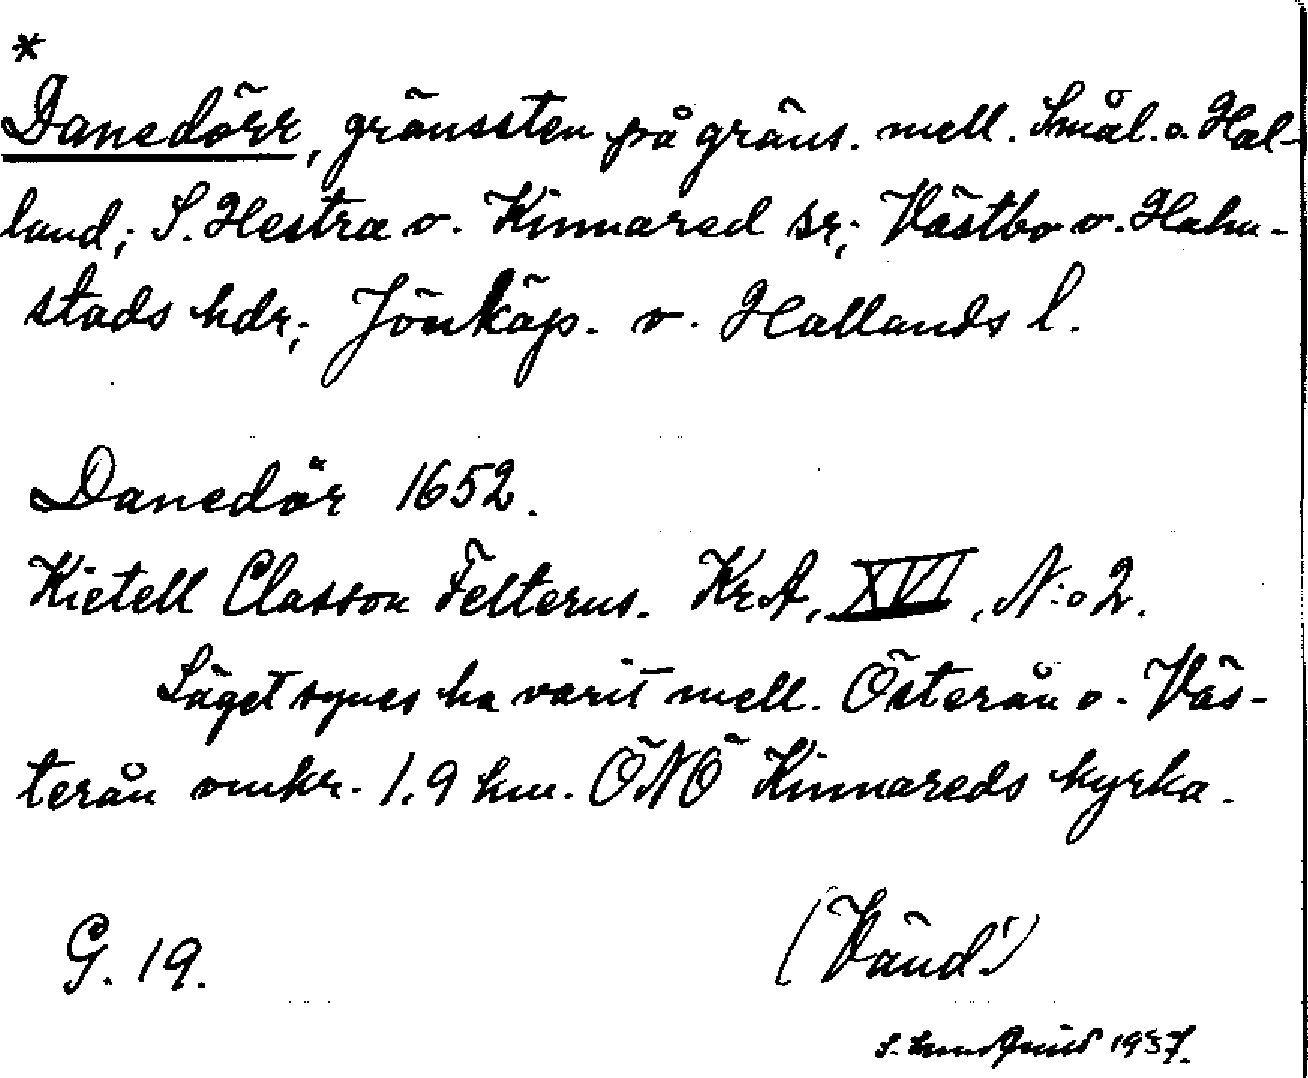 *
Danedörr, gränssten på gräns. mell. Smål. o. Hal-
land; S. Hestra o. Kinnared sr; Västbo o. Halm-
stads hdr; Jönköp. o. Hallands l.
Danedör 1652.
Kietell Classon Felterus. KrA, XVI, N:o 2.
Läget synes ha varit mell. Österån o. Väs-
terån omkr. 1.9 km. ÖNÖ Kinnareds kyrka.
G. 19.
(Vänd!)
S. Lundquist 1937.